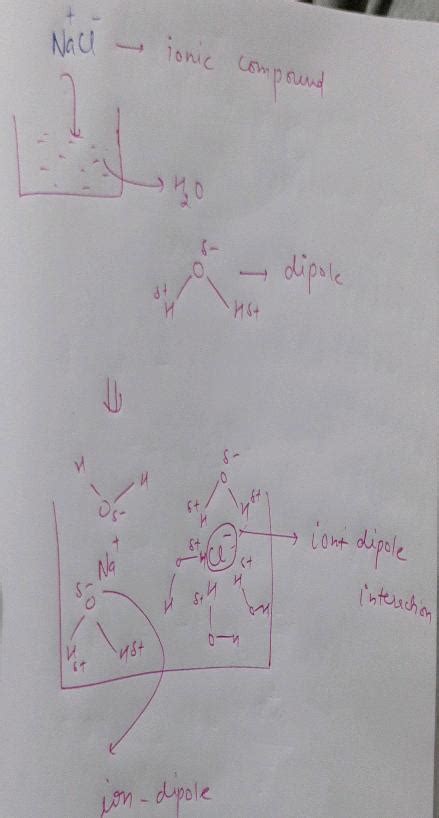 Na⁺Cl⁻ → ionic compound
H₂O
δ-
O → dipole
δ+ H H δ+
H H
O δ-
Na⁺
δ-
O
H δ+ H δ+
δ-
O
δ+ H H δ+
δ+ O-H Cl⁻ → ion-dipole
H δ+ H H δ+ interaction
O-H O-H
ion-dipole